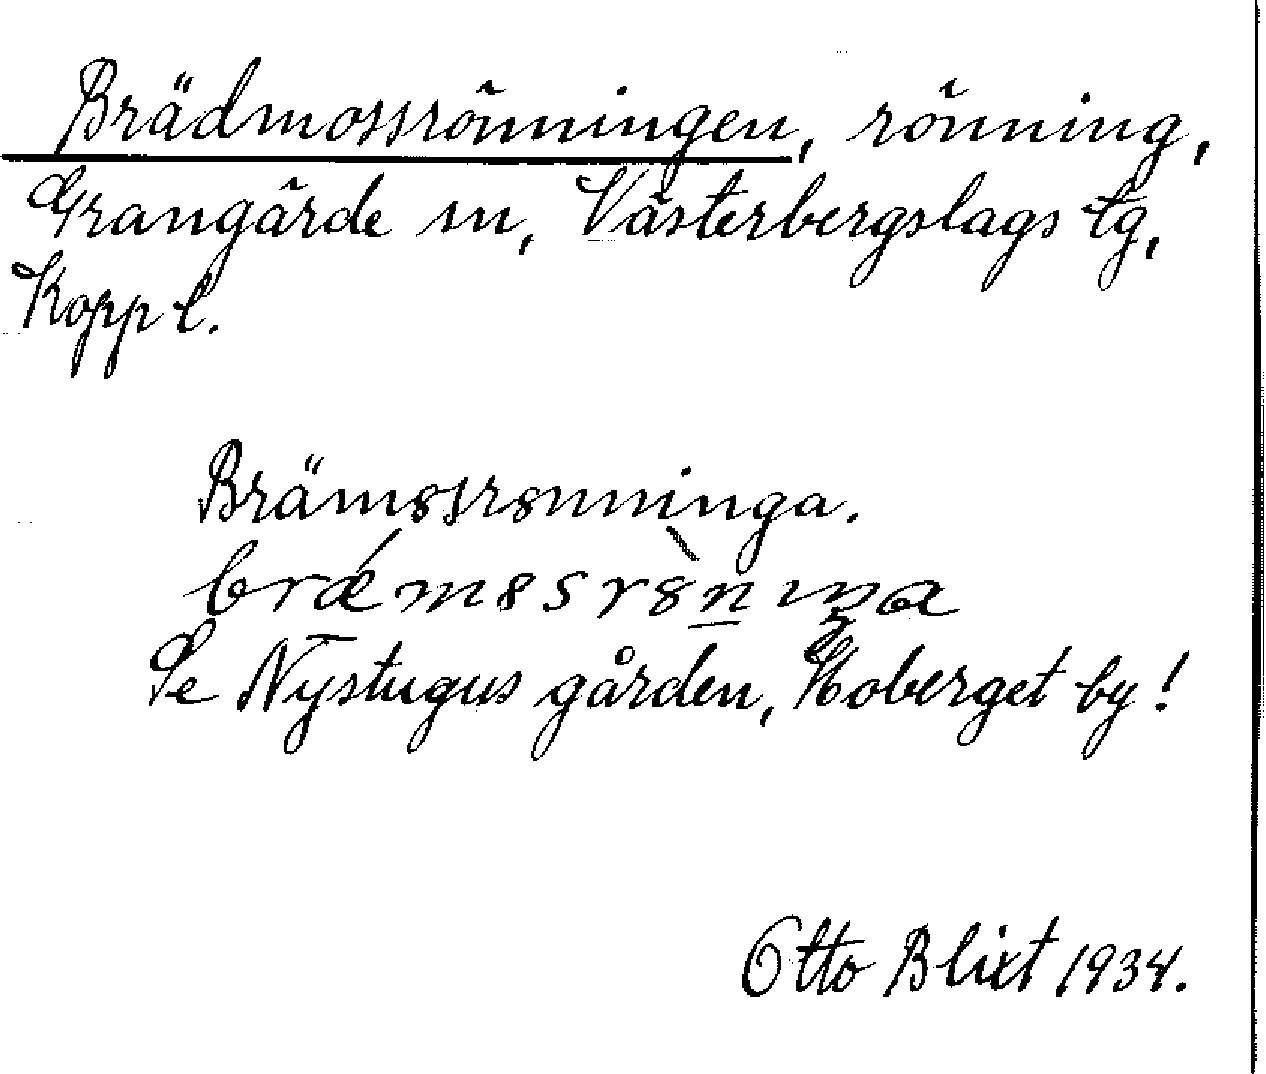 Brädmossrönningen, rönning,
Grangärde sn, Västerbergslags tg,
Kopp l.
Brämȣssrȣnninga.
brǽmȣsrȣ̀nıŋa
Se Nystugus gården, Hoberget by!
Otto Blixt 1934.